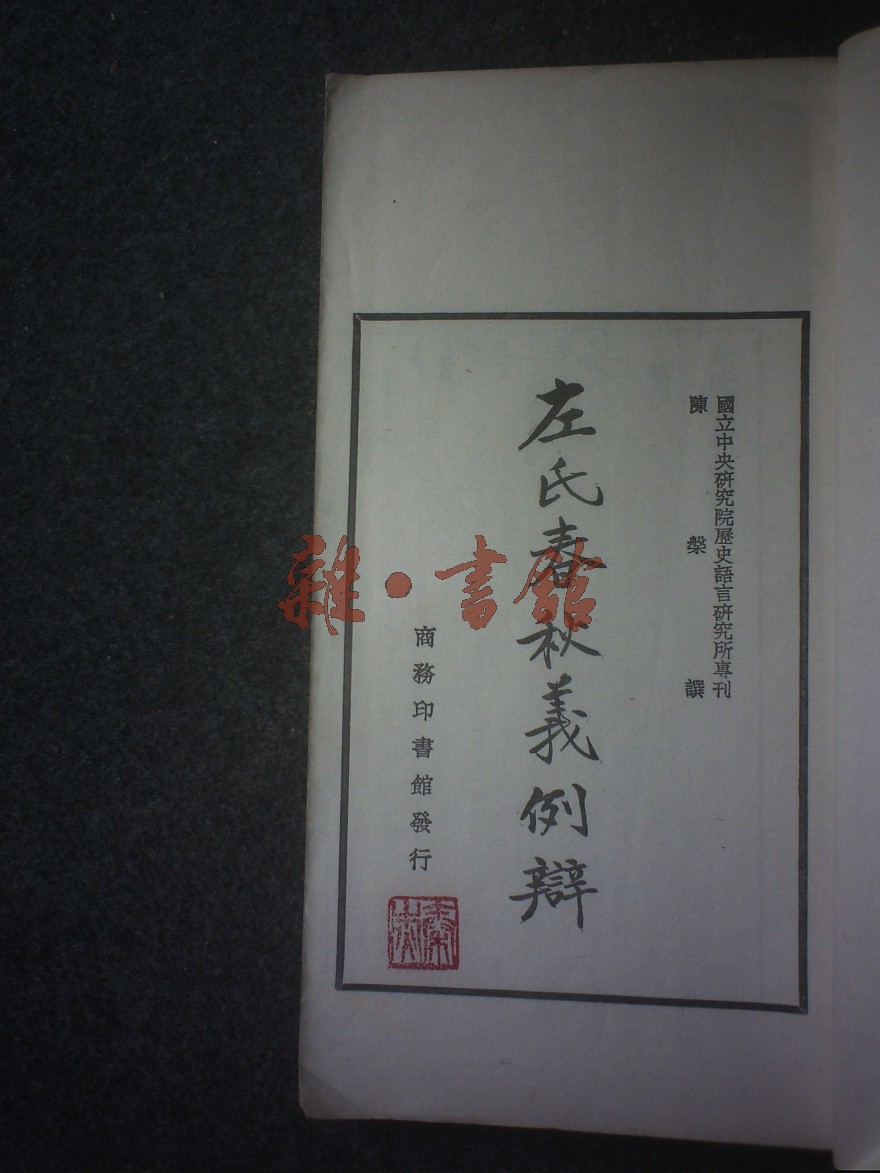 國立中央研究院歷史語言研究所專刊
陳槃譔
左氏春秋義例辯
商務印書館發行
雜·書館